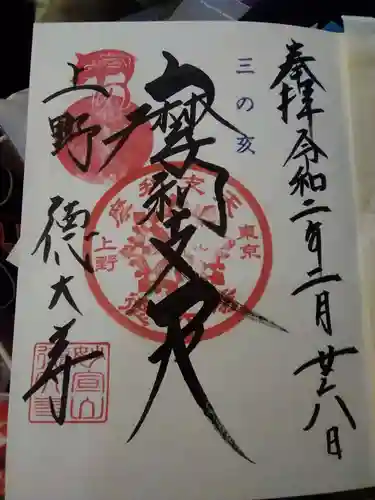 奉拝 令和二年二月廿八日
三の亥
摩利支天
上野
徳大寺
東京
上野